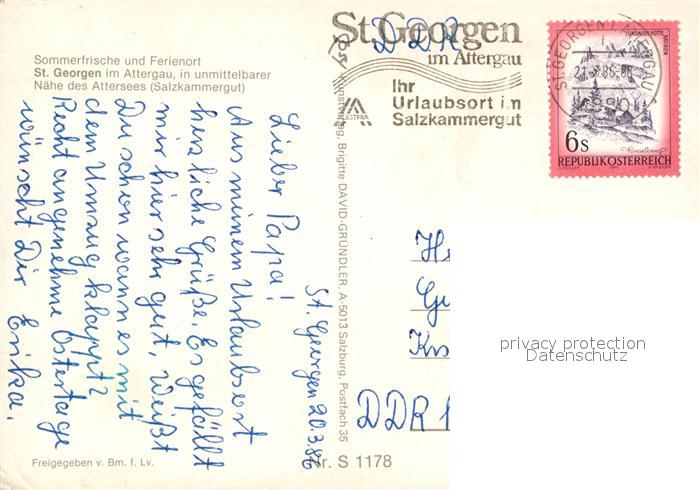 Sommerfrische und Ferienort
St. Georgen im Attergau, in unmittelbarer
Nähe des Attersees (Salzkammergut)
St. Georgen
im Attergau
Ihr
Urlaubsort im
Salzkammergut
AUSTRIA
DDR
ST. GEORGEN I. ATTERGAU
4880
6 S
REPUBLIK ÖSTERREICH
St. Georgen 20.3.86
Lieber Papa!
Aus meinem Urlaubsort
herzliche Grüße. Es gefällt
mir hier sehr gut. Weißt
Du schon wann es mit
dem Umzug klappt?
Recht angenehme Ostertage
wünscht Dir Erika.
Brigitte DAVID-GRÜNDLER, A-5013 Salzburg, Postfach 35
DDR 1
privacy protection
Datenschutz
Freigegeben v. Bm. f. Lv.
Nr. S 1178